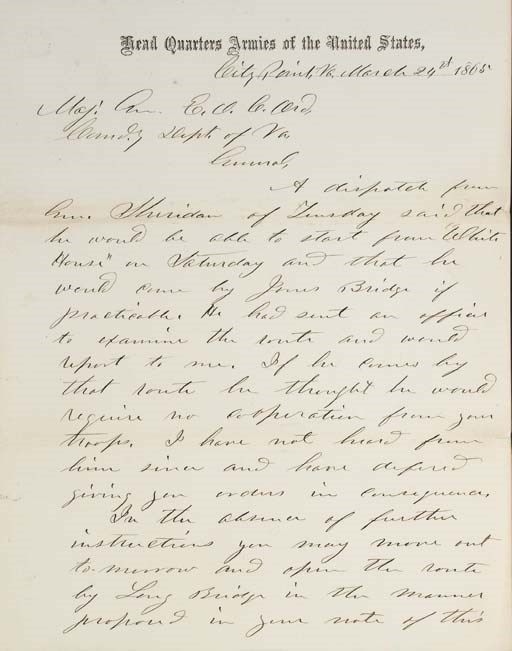 Head Quarters Armies of the United States,
City Point, Va. March 24th 1865
Maj. Gen. E. O. C. Ord,
Comd.g Dept. of Va,
General,
A dispatch from
Gen. Sheridan of Tuesday said that
he would be able to start from "White
House" on Saturday and that he
would come by Jones Bridge if
practicable. He had sent an officer
to examine the route and would
report to me. If he comes by
that route he thought he would
require no cooperation from your
troops. I have not heard from
him since and have defered
giving you orders in consequence.
In the absence of further
instructions you may move out
to-morrow and open the route
by Long Bridge in the manner
proposed in your note of this